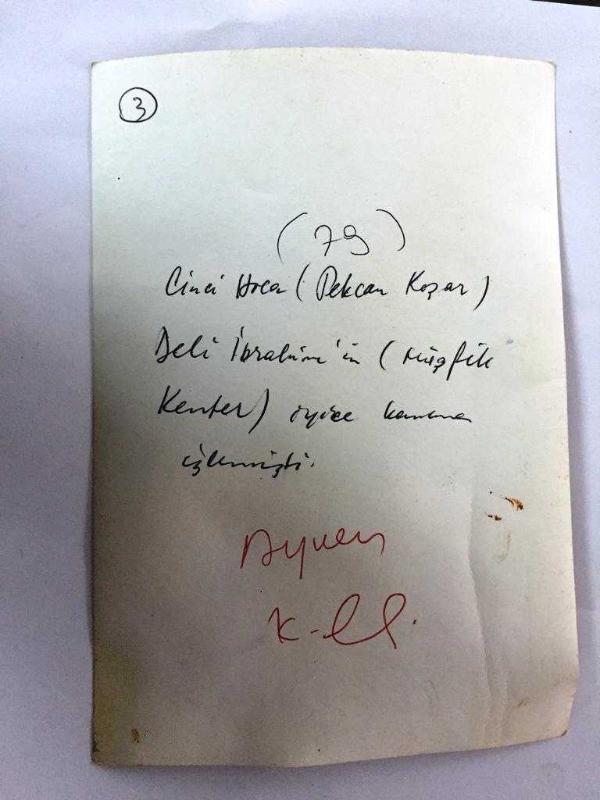 3
(79)
Cinci Hoca (Pekcan Koşar)
Deli İbrahim'in (Müşfik
Kenter) iyice kanına
işlemişti.
Aynen